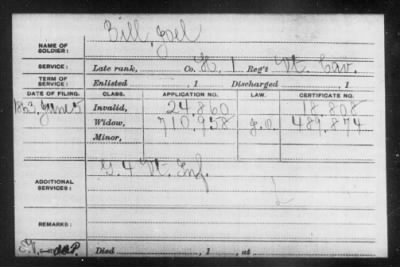 NAME OF SOLDIER: Bill, Joel
SERVICE: Late rank, Co. H, 1 Reg't Vt. Cav.
TERM OF SERVICE: Enlisted , 1 Discharged , 1
DATE OF FILING. CLASS. APPLICATION NO. LAW. CERTIFICATE NO.
1863, June 5 Invalid, 24.860 18.808
Widow, 710.958 G.L. 489.874
Minor,
ADDITIONAL SERVICES: G. 4 Vt. Inf.
REMARKS:
Died , 1 , at